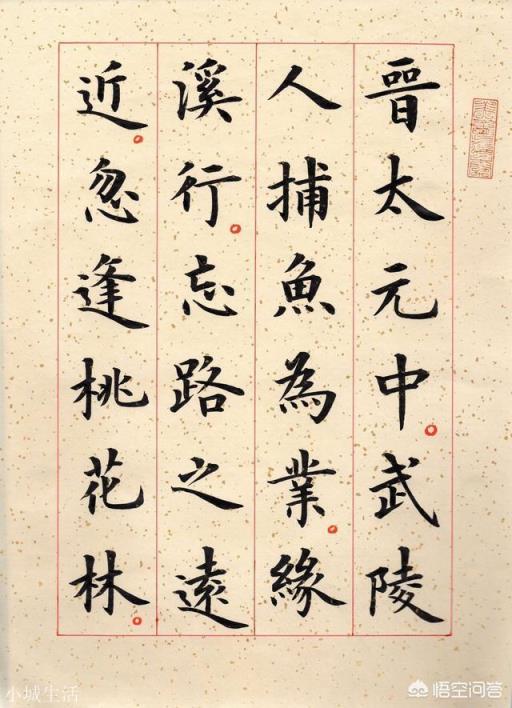 晉太元中。武陵
人捕魚為業。緣
溪行。忘路之遠
近。忽逢桃花林。
小城生活
悟空问答